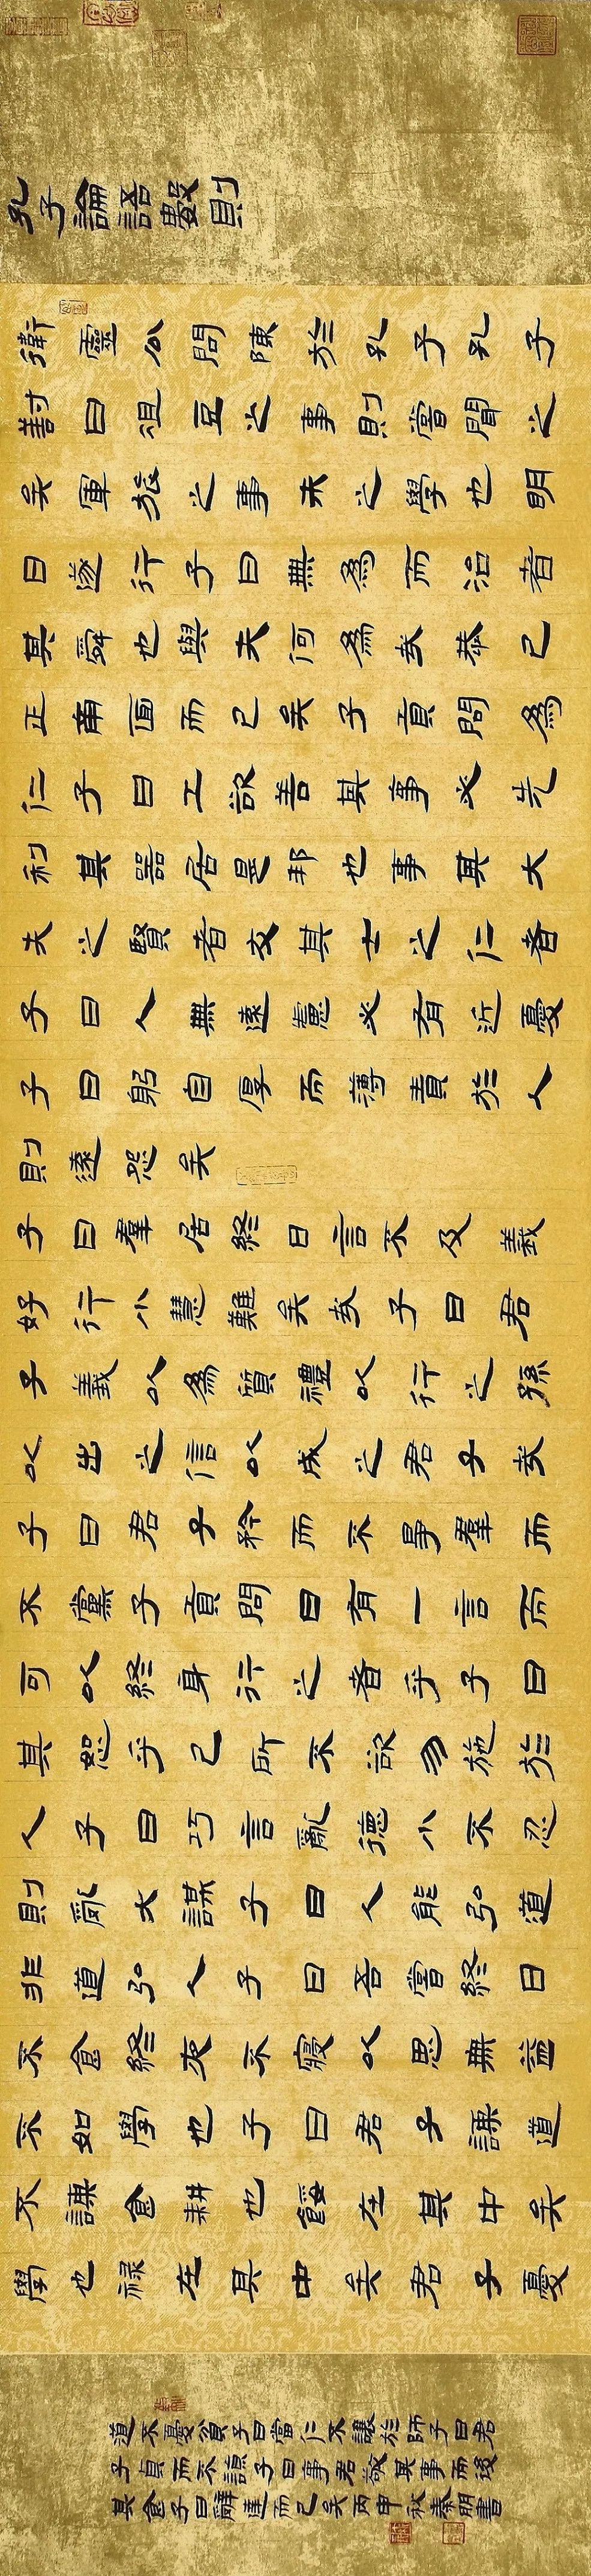 孔子論語數則
衛靈公問陳於孔子孔子
對曰俎豆之事則嘗聞之
矣軍旅之事未之學也明
日遂行子曰無為而治者
其舜也與夫何為哉恭己
正南面而已矣子貢問為
仁子曰工欲善其事必先
利其器居是邦也事其大
夫之賢者友其士之仁者
子曰人無遠慮必有近憂
子曰躬自厚而薄責於人
則遠怨矣
子曰羣居終日言不及義
好行小慧難矣哉子曰君
子義以為質禮以行之孫
以出之信以成之君子哉
子曰君子矜而不爭羣而
不黨子貢問曰有一言而
可以終身行之者乎子曰
其恕乎己所不欲勿施於
人子曰巧言亂德小不忍
則亂大謀子曰人能弘道
非道弘人子曰吾嘗終日
不食終夜不寢以思無益
不如學也子曰君子謀道
不謀食耕也餒在其中矣
學也祿在其中矣君子憂
道不憂貧子曰當仁不讓於師子曰君
子貞而不諒子曰事君敬其事而後
其食子曰辭達而已矣丙申秋秦朋書